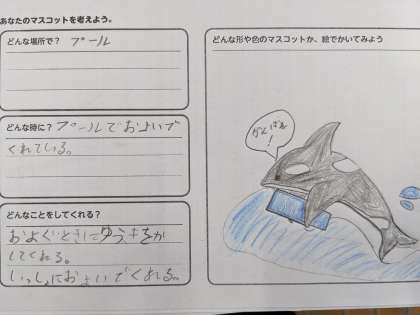 あなたのマスコットを考えよう。
どんな場所で？ プール
どんな時に？ プールでおよいで
くれている。
どんなことをしてくれる？
およぐときにゆうきをか
してくれる。
いっしょにおよいでくれる。
どんな形や色のマスコットか、絵でかいてみよう
がんばれ
！